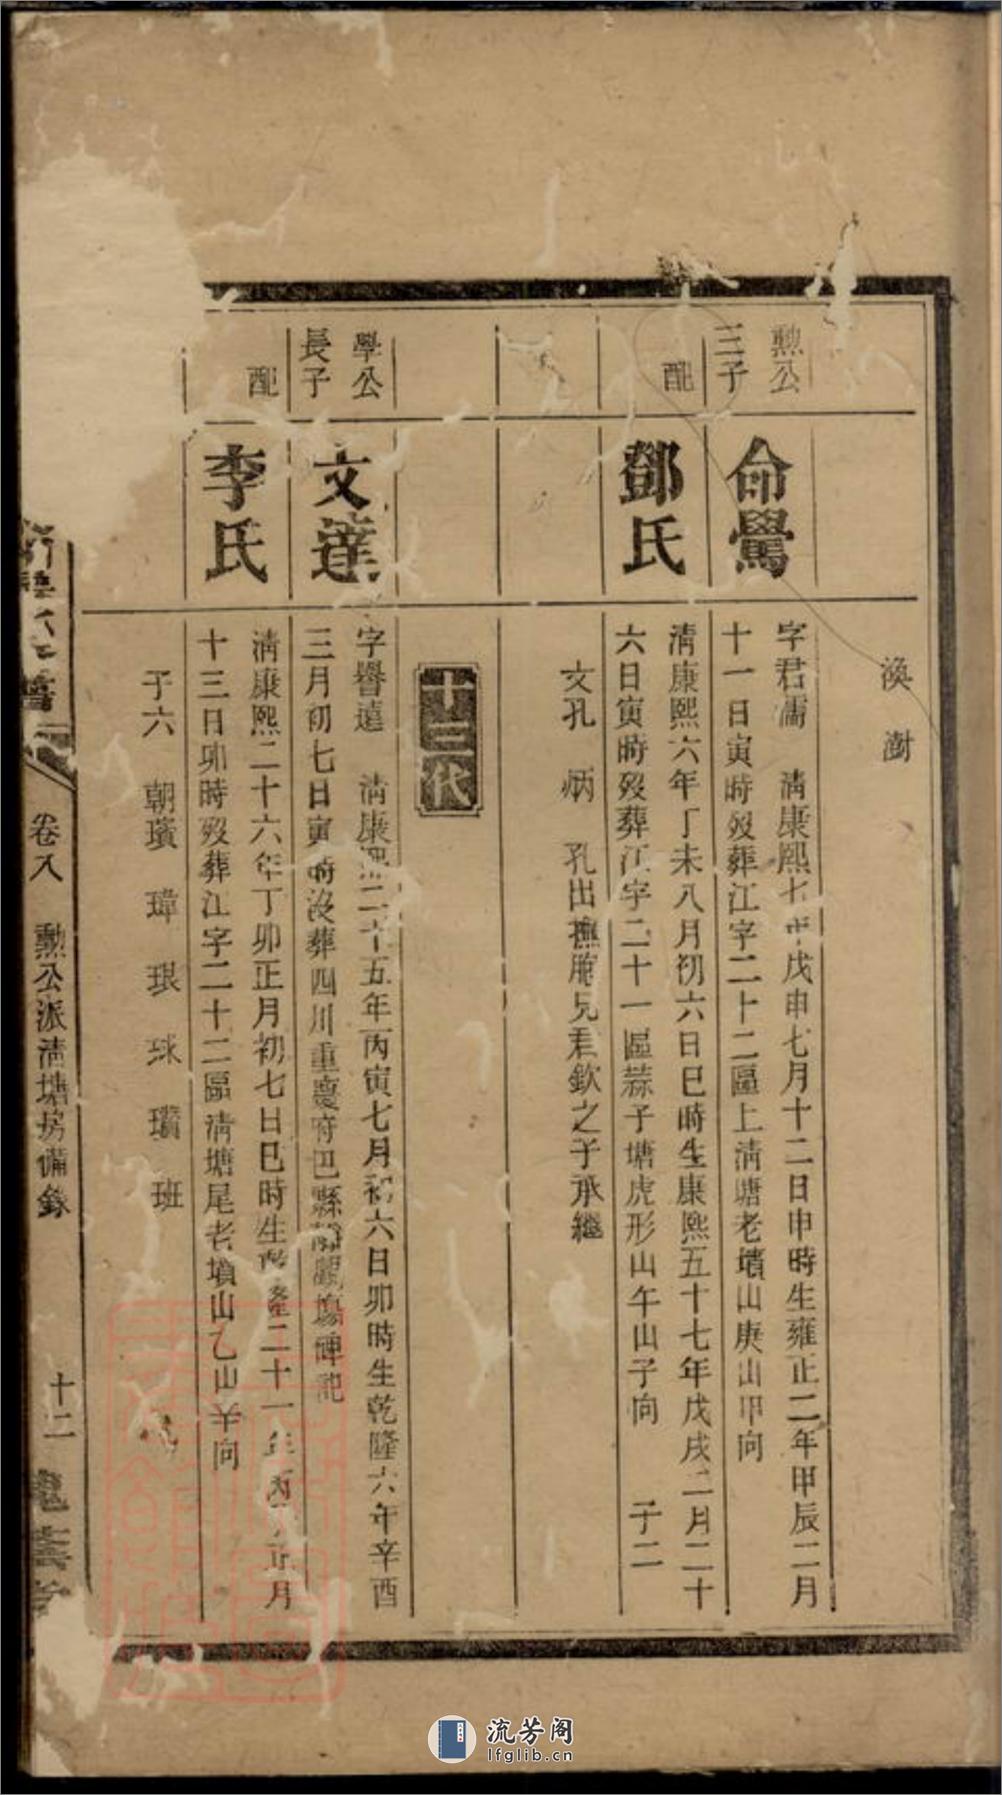 渙 澍
勲公
三子
命鸎
字君濡 清康熙七年戊申七月十二日申時生雍正二年甲辰二月
十一日寅時歿葬江字二十二區上清塘老墳山庚山甲向
配
鄧氏
清康熙六年丁未八月初六日巳時生康熙五十七年戊戌二月二十
六日寅時歿葬江字二十一區蒜子塘虎形山午山子向 子二
文孔 炳 孔出撫胞兄君欽之子承繼
十三代
學公
長子
文達
字譽遠 清康熙二十五年丙寅七月初六日卯時生乾隆六年辛酉
三月初七日寅時沒葬四川重慶府巴縣
碑記
配
李氏
清康熙二十六年丁卯正月初七日巳時生乾隆二十一年丙子正月
十三日卯時歿葬江字二十二區清塘尾老墳山乙山羊向
子六 朝璸 瑋 珢 球 瓚 班
卷八 勲公派清塘房備錄 十二
流芳阁
lfglib.cn